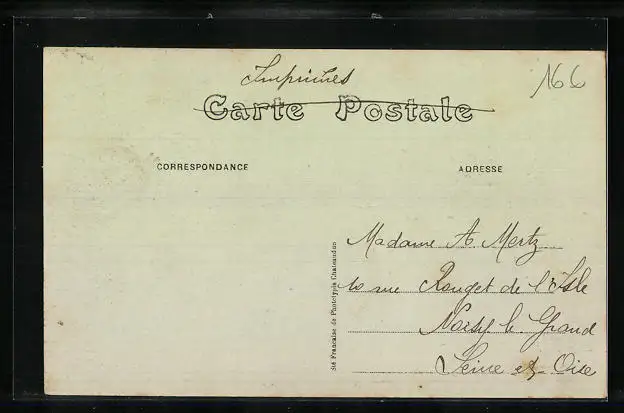 Imprimés
166
Carte Postale
CORRESPONDANCE
ADRESSE
Madame A. Mertz
10 rue Rouget de l'Isle
Noisy le Grand
Seine et Oise
Sté Française de Phototypie Chateaudun